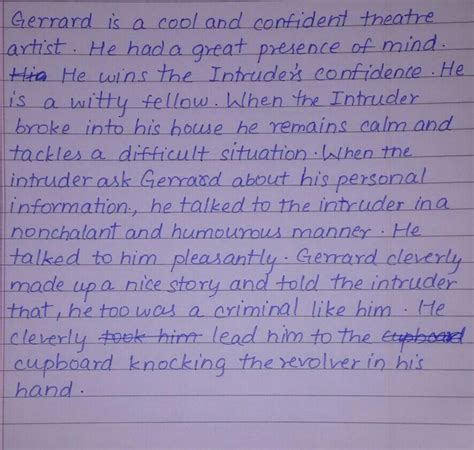 Gerrard is a cool and confident theatre
artist. He had a great presence of mind.
His He wins the Intruder's confidence. He
is a witty fellow. When the Intruder
broke into his house he remains calm and
tackles a difficult situation. When the
intruder ask Gerrard about his personal
information, he talked to the intruder in a
nonchalant and humourous manner. He
talked to him pleasantly. Gerrard cleverly
made up a nice story and told the intruder
that, he too was a criminal like him. He
cleverly took him lead him to the cupboard
cupboard knocking the revolver in his
hand.